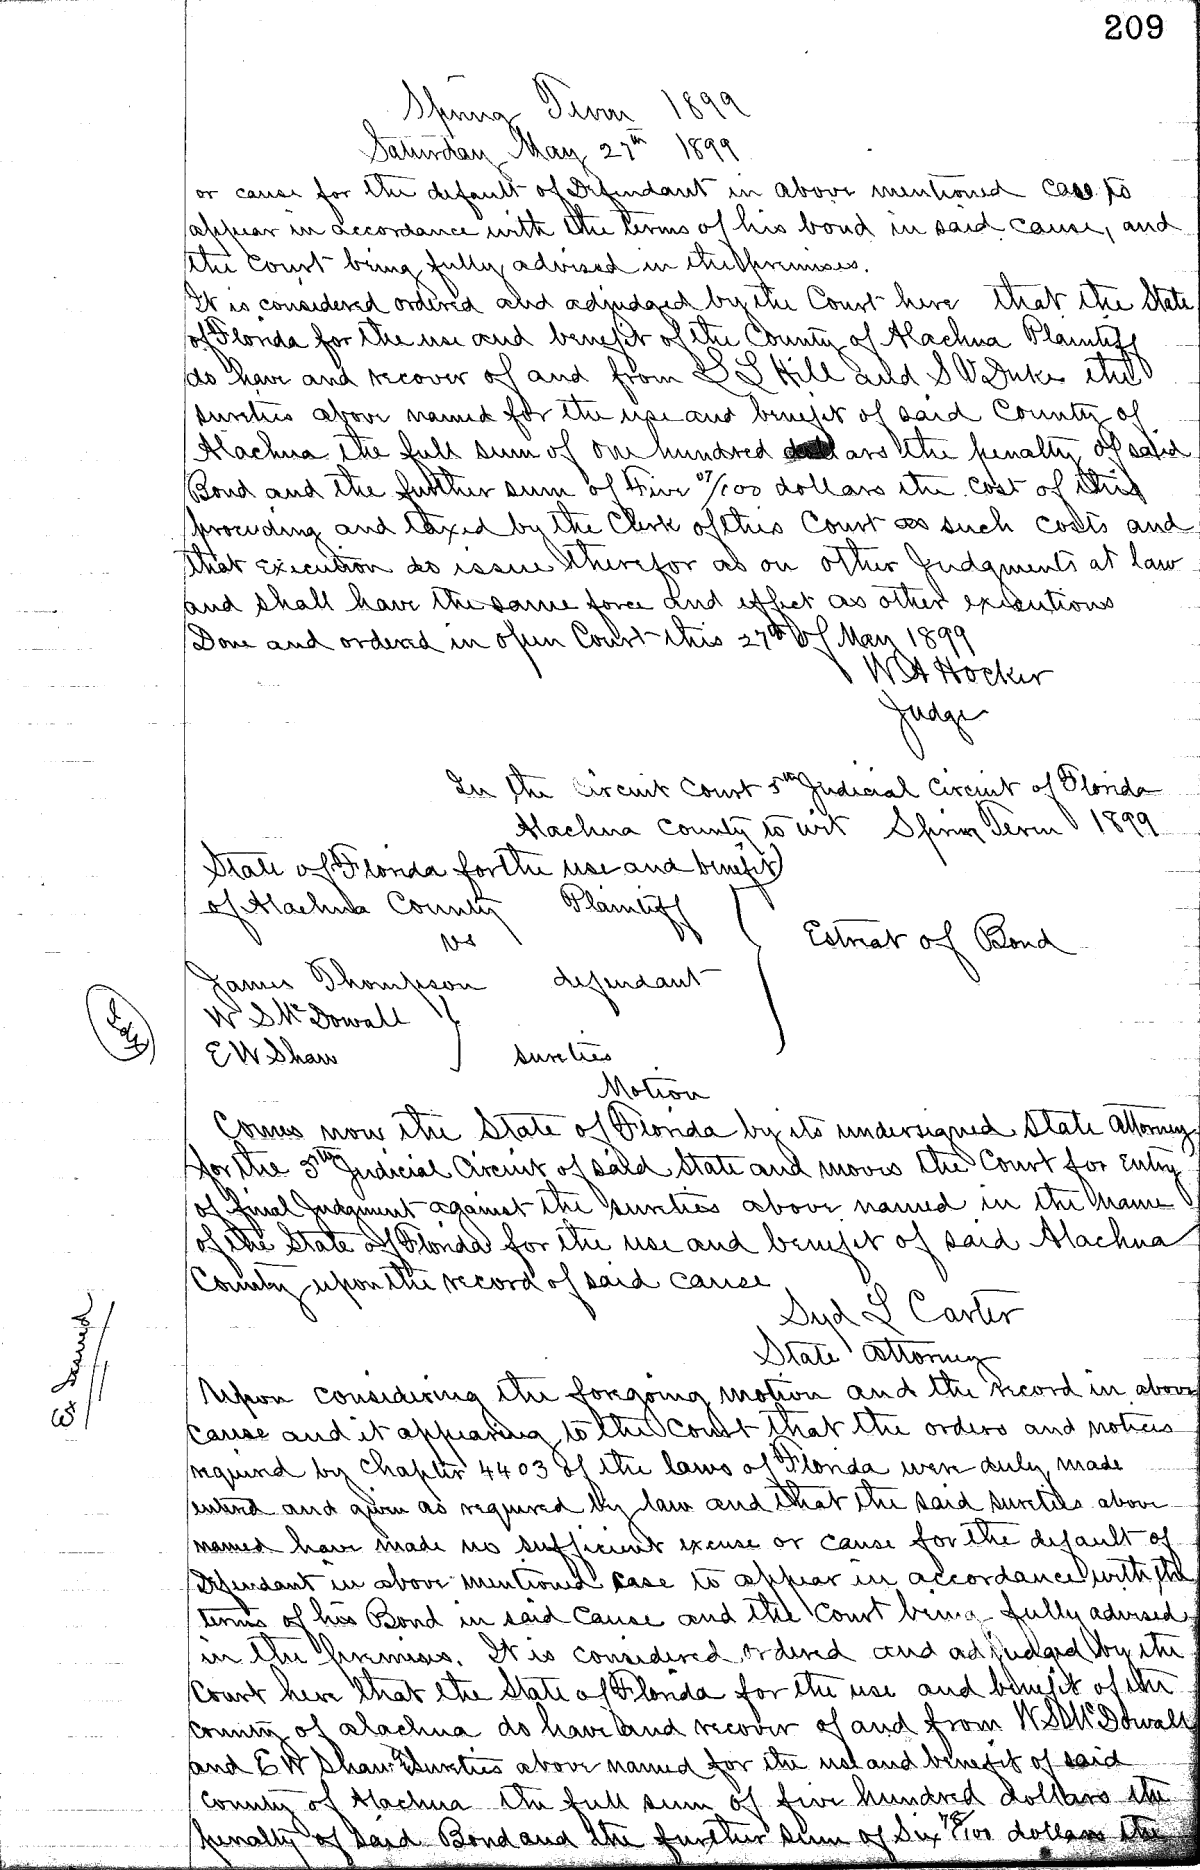 209
Spring Term 1899
Saturday May 27th 1899
or cause for the default of Defendant in above mentioned case to
appear in accordance with the terms of his bond in said cause, and
the Court being fully advised in the premises.
It is considered ordered and adjudged by the Court here that the State
of Florida for the use and benefit of the County of Alachua Plaintiff
do have and recover of and from L L Hill and S V Duke the
sureties above named for the use and benefit of said County of
Alachua the full sum of one hundred dollars the penalty of said
Bond and the further sum of Five 07/100 dollars the cost of this
proceeding and taxed by the Clerk of this Court as such costs and
that execution do issue therefor as on other Judgments at law
and shall have the same force and effect as other executions
Done and ordered in open Court this 27th of May 1899
W A Hocker
Judge
In the Circuit Court 5th Judicial Circuit of Florida
Alachua County to wit Spring Term 1899
State of Florida for the use and benefit
of Alachua County Plaintiff
vs
Estreat of Bond
James Thompson defendant
W S McDowall
E W Shaw sureties
Motion
Comes now the State of Florida by its undersigned State Attorney
for the 5th Judicial Circuit of said State and moves the Court for Entry
of final Judgment against the sureties above named in the name
of the State of Florida for the use and benefit of said Alachua
County upon the record of said cause
Syd L Carter
State Attorney
Ex Issued
Upon considering the forgoing motion and the record in above
cause and it appearing to the Court that the orders and notices
required by Chapter 4403 of the laws of Florida were duly made
entered and given as required by law and that the said sureties above
named have made no sufficient excuse or cause for the default of
Defendant in above mentioned case to appear in accordance with the
terms of his Bond in said cause and the Court being fully advised
in the premises. It is considered ordered and adjudged by the
Court here that the State of Florida for the use and benefit of the
County of Alachua do have and recover of and from W S McDowall
and E W Shaw Sureties above named for the use and benefit of said
County of Alachua the full sum of five hundred dollars the
penalty of said Bond and the further sum of Six 78/100 dollars the